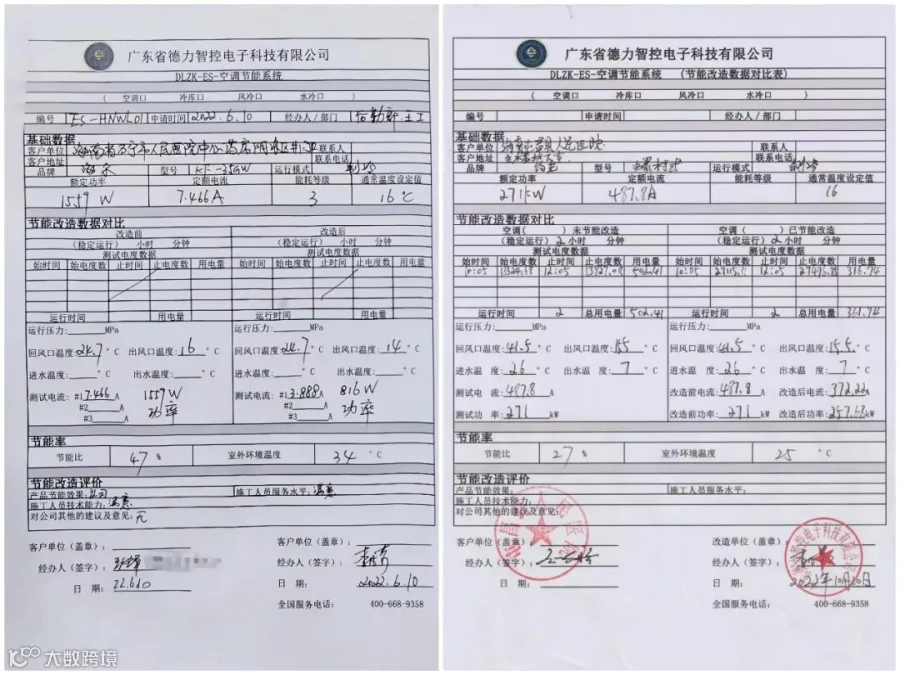 广东省德力智控电子科技有限公司
DLZK-ES-空调节能系统
( 空调口 冷库口 风冷口 水冷口 )
编号 ES-HNWL01 申请时间 2022.6.10 经办人/部门
基础数据
客户单位 海南省万宁市人民医院中心药房 联系人
客户地址 联系电话
品牌 型号 KF-35GW 运行模式 制冷
额定功率 定额电流 能耗等级 通常温度设定值
1559 W 7.466A 3 16℃
节能改造数据对比
改造前 改造后
(稳定运行) 小时 分钟 (稳定运行) 小时 分钟
测试电度数据 测试电度数据
始时间 始电度数 止时间 止电度数 用电量 始时间 始电度数 止时间 止电度数 用电量
运行时间 用电量 运行时间 用电量
运行压力: MPa 运行压力: MPa
回风口温度: 24.7 °C 出风口温度: 16 °C 回风口温度: 24.7 °C 出风口温度: 14 °C
进水温度: °C 出水温度: °C 进水温度: °C 出水温度: °C
测试电流: #1 7.466 A 1559W 测试电流: #1 3.888 A 816W
#2 A 功率 #2 A 功率
#3 A #3 A
节能率
节能比 47 % 室外环境温度 34 °C
节能改造评价
产品节能效果: 施工人员服务水平: 满意
施工人员技术能力: 满意
对公司其他的建议及意见: 无
客户单位(盖章): 客户单位(盖章):
经办人(签字): 经办人(签字):
日期: 22.6.10 日期: 2022.6.10
全国服务电话: 400-668-9358
广东省德力智控电子科技有限公司
DLZK-ES-空调节能系统 (节能改造数据对比表)
( 空调口 冷库口 风冷口 水冷口 )
编号 申请时间 经办人/部门
基础数据
客户单位 联系人
客户地址 联系电话
品牌 型号 螺杆机 运行模式 制冷
额定功率 定额电流 能耗等级 通常温度设定值
271KW 487.8A 16
节能改造数据对比
空调( )未节能改造 空调( )已节能改造
(稳定运行) 2 小时 分钟 (稳定运行) 2 小时 分钟
测试电度数据 测试电度数据
始时间 始电度数 止时间 止电度数 用电量 始时间 始电度数 止时间 止电度数 用电量
10:05 12:05 502.41 10:05 12:05
运行时间 2 总用电量 502.41 运行时间 2 总用电量 361.74
运行压力: MPa 运行压力: MPa
回风口温度: 41.5 °C 出风口温度: °C 回风口温度: 41.5 °C 出风口温度: 15.5 °C
进水温度: 26 °C 出水温度: 7 °C 进水温度: 26 °C 出水温度: 7 °C
测试电流: 487.8 A 改造前电流: 487.8 A 改造后电流: 372.22 A
测试功率: 271 kW 改造前功率: 271 kW 改造后功率: 257.68 kW
节能率
节能比 27 % 室外环境温度 25 °C
节能改造评价
产品节能效果: 施工人员服务水平:
施工人员技术能力:
对公司其他的建议及意见:
客户单位(盖章): 改造单位(盖章):
经办人(签字): 经办人(签字):
日期: 日期: 2022年10月20日
全国服务电话: 400-668-9358
大数跨境